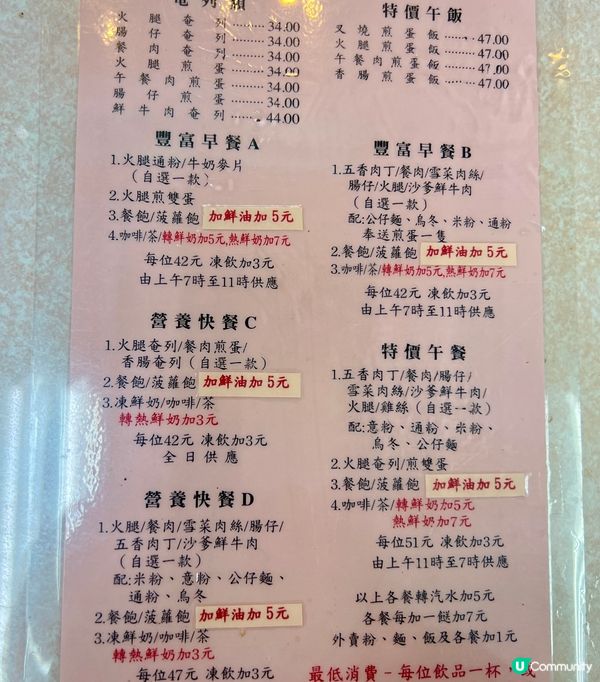 奄列類
火腿奄列 34.00
腸仔奄列 34.00
餐肉奄列 34.00
火腿煎蛋 34.00
午餐肉煎蛋 34.00
腸仔煎蛋 34.00
鮮牛肉奄列 44.00
特價午飯
叉燒煎蛋飯 47.00
火腿煎蛋飯 47.00
午餐肉煎蛋飯 47.00
香腸煎蛋飯 47.00
豐富早餐A
1.火腿通粉/牛奶麥片
(自選一款)
2.火腿煎雙蛋
3.餐飽/菠蘿飽 加鮮油加5元
4.咖啡/茶/轉鮮奶加5元,熱鮮奶加7元
每位42元 凍飲加3元
由上午7時至11時供應
豐富早餐B
1.五香肉丁/餐肉/雪菜肉絲/
腸仔/火腿/沙爹鮮牛肉
(自選一款)
配:公仔麵、烏冬、米粉、通粉
奉送煎蛋一隻
2.餐飽/菠蘿飽 加鮮油加5元
3.咖啡/茶/轉鮮奶加5元,熱鮮奶加7元
每位42元 凍飲加3元
由上午7時至11時供應
營養快餐C
1.火腿奄列/餐肉煎蛋/
香腸奄列(自選一款)
2.餐飽/菠蘿飽 加鮮油加5元
3.凍鮮奶/咖啡/茶
轉熱鮮奶加3元
每位42元 凍飲加3元
全日供應
特價午餐
1.五香肉丁/餐肉/腸仔/
雪菜肉絲/沙爹鮮牛肉/
火腿雞絲(自選一款)
配:意粉、通粉、米粉、
烏冬、公仔麵
2.火腿奄列/煎雙蛋
3.餐飽/菠蘿飽 加鮮油加5元
4.咖啡/茶/轉鮮奶加5元
熱鮮奶加7元
每位51元 凍飲加3元
由上午11時至7時供應
營養快餐D
1.火腿/餐肉/雪菜肉絲/腸仔/
五香肉丁/沙爹鮮牛肉
(自選一款)
配:米粉、意粉、公仔麵、
通粉、烏冬
2.餐飽/菠蘿飽 加鮮油加5元
3.凍鮮奶/咖啡/茶
轉熱鮮奶加3元
每位47元 凍飲加3元
以上各餐轉汽水加5元
各餐每加一餸加7元
外賣粉、麵、飯及各餐加1元
最低消費-每位飲品一杯,或
U Community